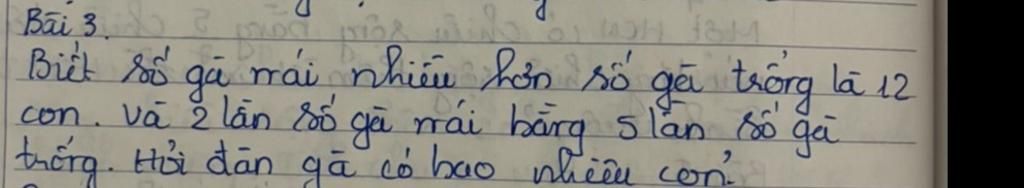 Bài 3.
Biết số gà mái nhiều hơn số gà trống là 12
con. và 2 lần số gà mái bằng 5 lần số gà
trống. Hỏi đàn gà có bao nhiêu con?